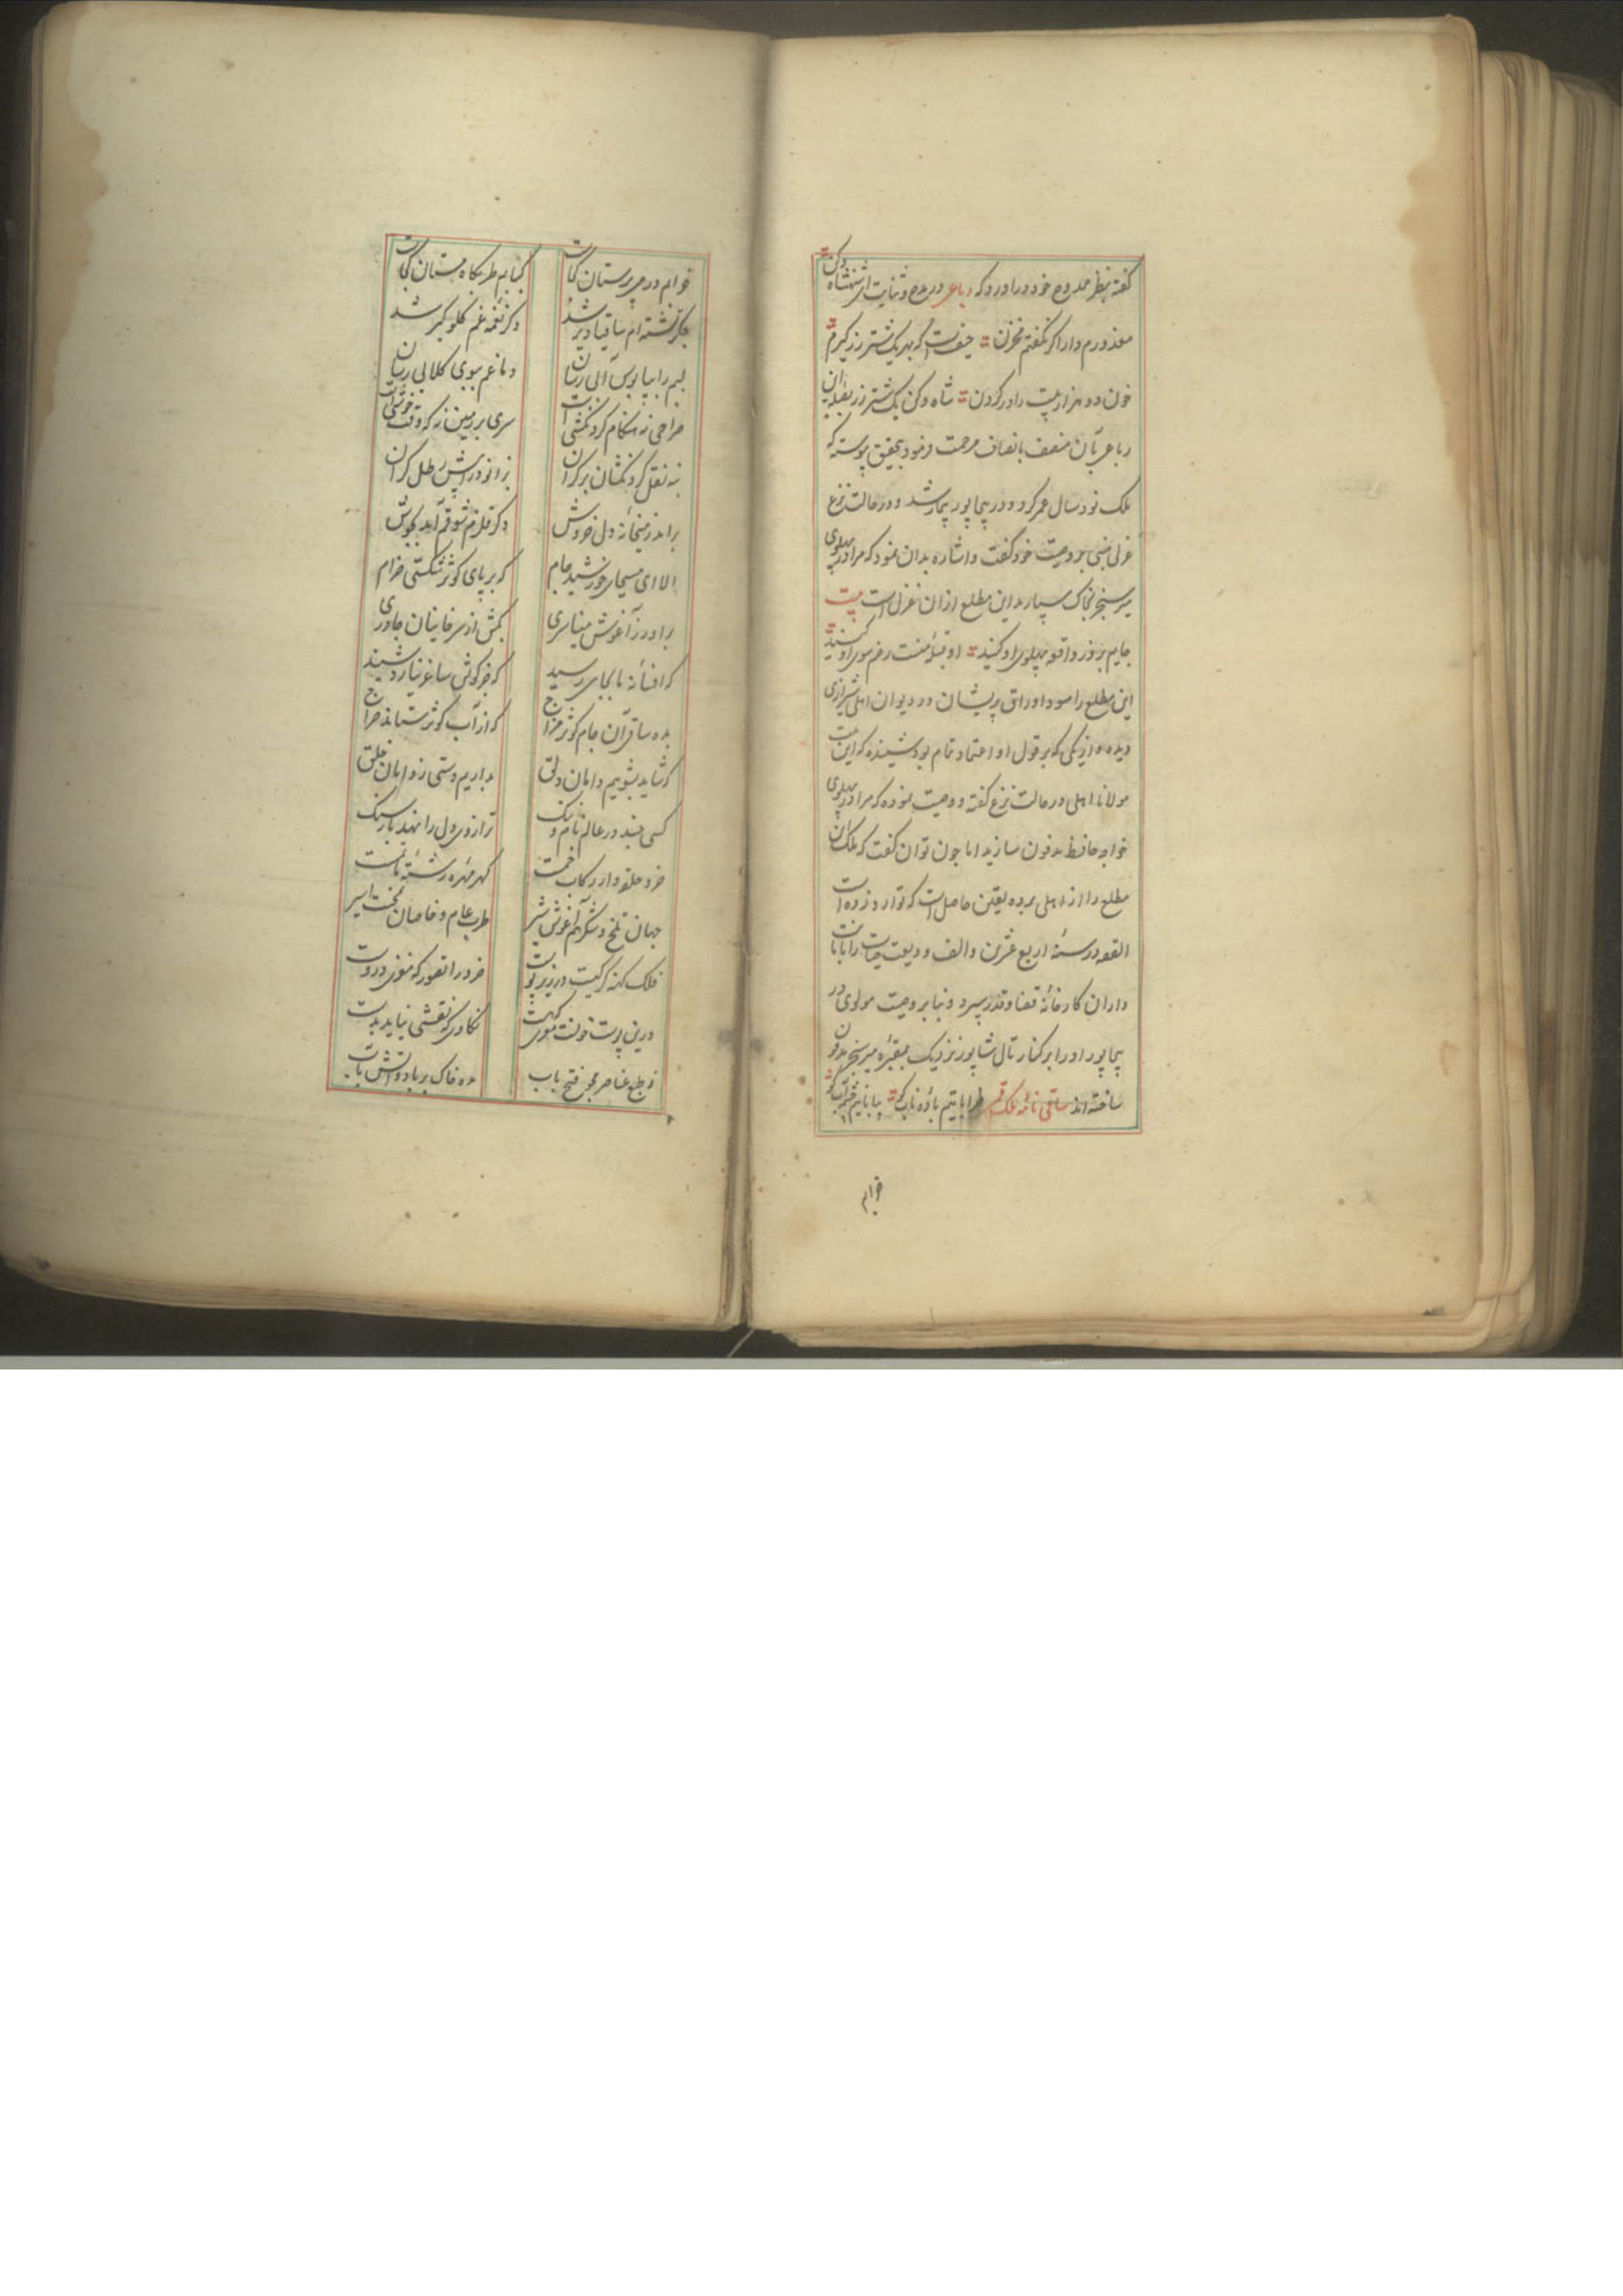 کفته بنظر ممدوح خود در اورد که رباعی در مدح و ثنایت ای شهنشاه دکن
معذورم دار اکر نکفتم مخزن حیفست که بهر یک شتر زر کیرم
خون دو هزار بیت را در کردن شاه دکن یک شتر زر بصله این
رباعی بآن منصف بانصاف مرحمت فرمود بتحقیق پیوسته که
ملک نود سال عمر کرد و در بیجاپور بیمار شد و در حالت نزع
غزلی مبنی بر وصیت خود کفت و اشاره بدان نمود که مرا در پهلوی
میر سنجر بخاک سپارید این مطلع ازان غزل است بیت
جایم بروز واقعه پهلوی او کنید او قبلهٔ منست رخم سوی او کنید
این مطلع را مسود اوراق پریشان در دیوان اهلی شیرازی
دیده و از یکی که بر قول او اعتماد تمام بود شنیده که این بیت
مولانا اهلی در حالت نزع کفته و وصیت نموده که مرا در پهلوی
خواجه حافظ مدفون سازید اما چون توان کفت که ملک این
مطلع را از اهلی برده یقین حاصل است که توارد زده است
القصه در سنهٔ اربع عشرین و الف ودیعت حیات را بامانت
داران کارخانهٔ قضا و قدر سپرد و بنابر وصیت مولوی در
بیجاپور او را بر کنار تال شاپور نزدیک بمقبرهٔ میر سنجر مدفون
ساخته اند ساقی نامهٔ ملک قمی خراباتیم بادهٔ ناب کو بیابانیم چشمهٔ آب کو
خرابم
خرابم در می پرستان کجاست کبابم طربکاه مستان کجاست
جکر تشنه ام ساقیا دیر شد دکر نغمه غم کلو کیر شد
لبم را بپابوس آبی رسان دماغم ببوی کلابی رسان
صراحی نه هنکام کردنکشی است سری بر زمین نه که وقت خوشی است
بنه نقل کردنکشان بر کران بزانو در آپیش رطل کران
برامد ز میخانه دل خروش دکر قلزم شوقم آمد بجوش
الا ای مسیحای خورشید جام که بر پای کوثر شکستی خرام
براور ز آغوش مینا سری بکش از سر خانیان چادری
که افسانه ما بجایی رسید که جز کوش ساغر نیارد شنید
بده ساقی آن جام کوثر مزاج که از آب کوثر ستاند خراج
که شاید بشوییم دامان دلق بداریم دستی ز دامان خلق
کسی چند در عالم نام و ننک ترازوی دل را نهد بار سنک
خرد حلقه دار رکاب خمت کهر مهره رشتهٔ
جهان تلخ و شکر هم آغوش شیر طرب عام و خاصان بمحنت اسیر
فلک کهنه کرکیست در زیر پوست خرد را تصور که مغزی دروست
درین پوست خونست موی کهن نکاری که نقشی نیاید بدست
ز طبع عناصر مجو فتح باب مده خاک بر باد و آتش بآب